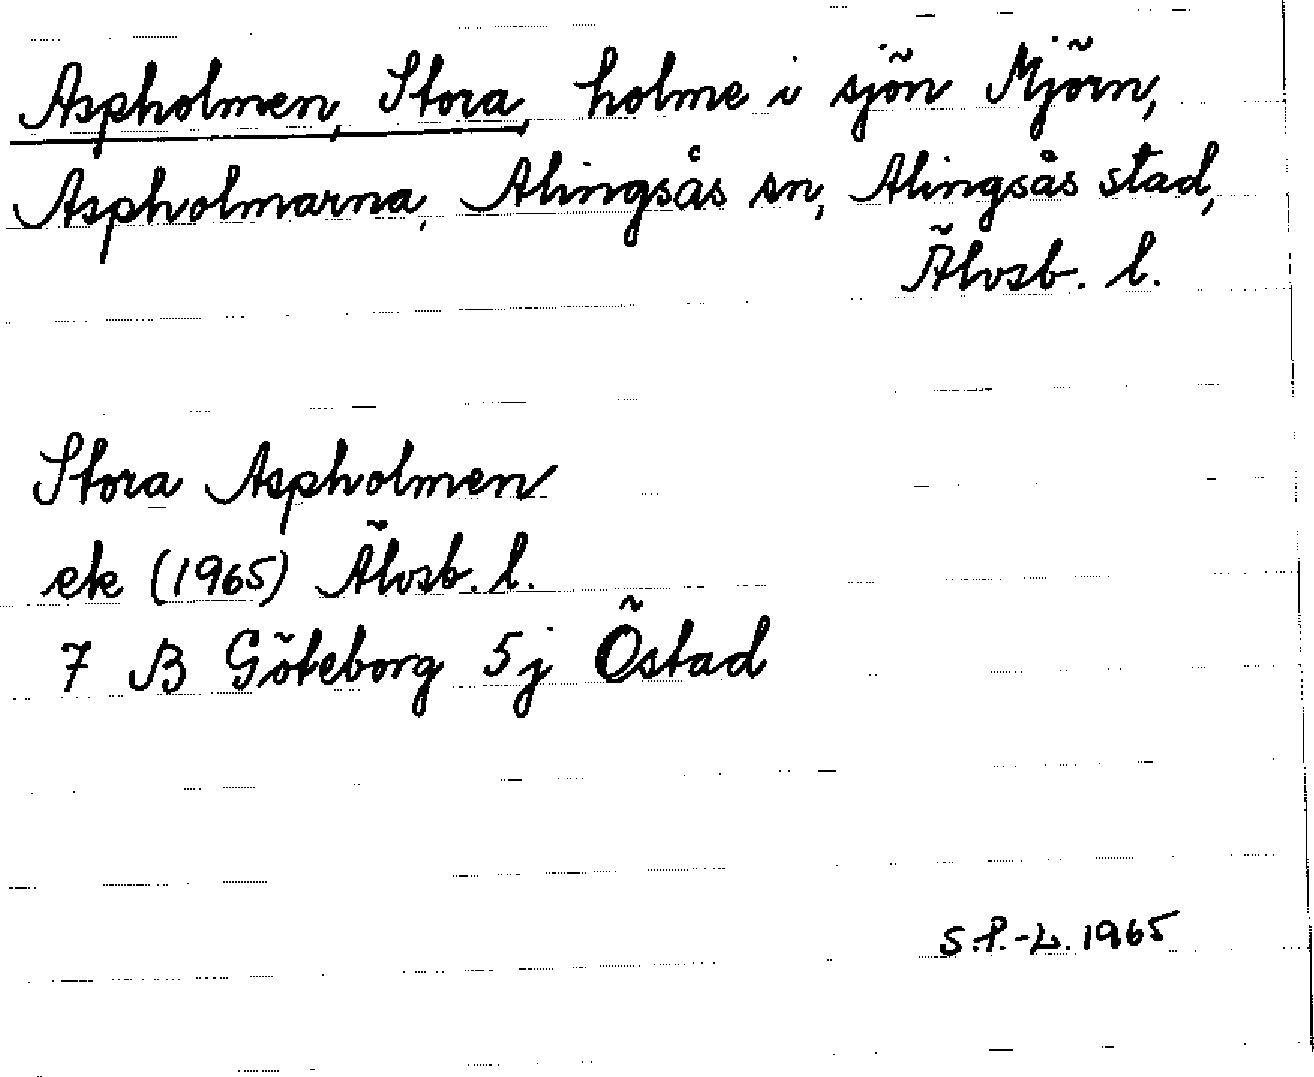 Aspholmen, Stora, holme i sjön Mjörn,
Aspholmarna, Alingsås sn, Alingsås stad,
Älvsb. l.
Stora Aspholmen
ek (1965) Älvsb. l.
7 B Göteborg 5j Östad
S.P.-L. 1965